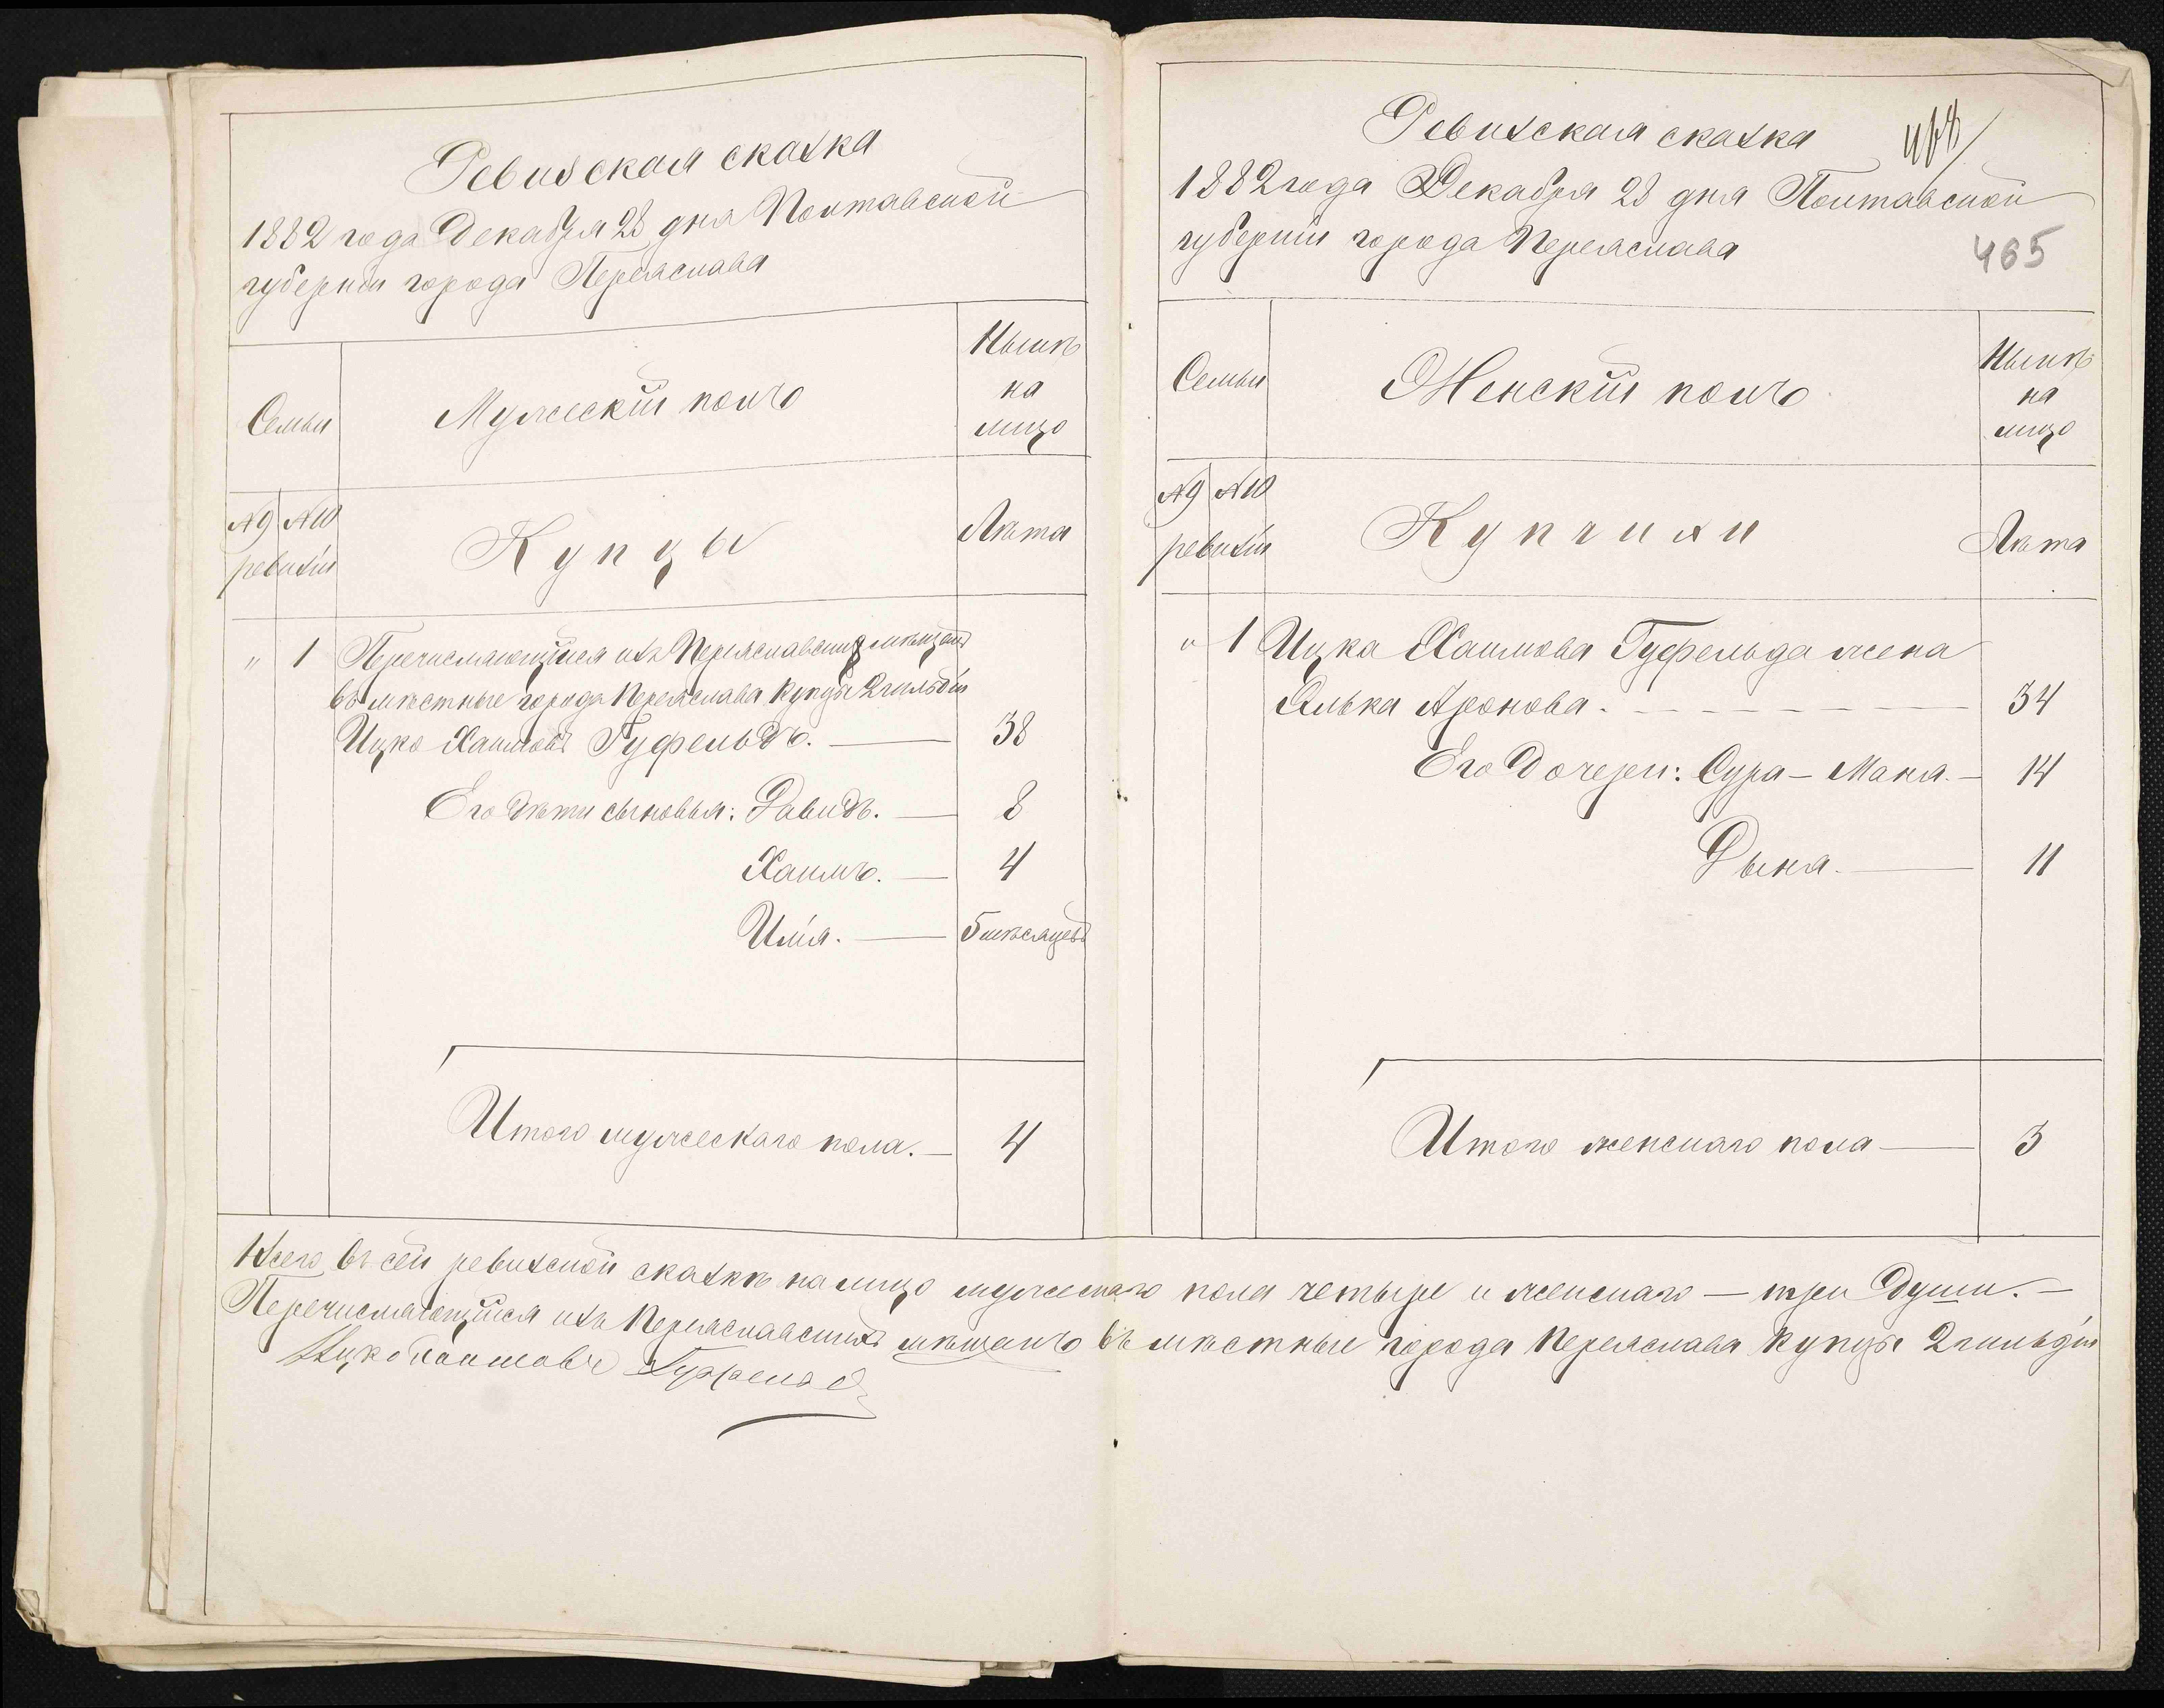 Ревизская сказка
1882 года Декабря 28 дня Полтавской
губернии города Переяслава
Семьи
Мужескій полъ
Нынѣ
на
лицо
№ 9 № 10
ревизіи
Купцы
Лѣта
" 1 Перечисляющійся изъ Переяславскихъ мѣщанъ
въ мѣстные города Переяслава купцы 2 гильдіи
Ицко Хаимовъ Гуфельдъ. — 38
Его дѣти сыновья: Давидъ. — 8
Хаимъ. — 4
Илія. — 5 мѣсяцевъ
Итого мужескаго пола. — 4
Ревизская сказка
1882 года Декабря 28 дня Полтавской
губерніи города Переяслава
465
Семьи
Женскій полъ
Нынѣ
на
лицо
№ 9 № 10
ревизіи
Купчихи
Лѣта
" 1 Ицка Хаимова Гуфельда жена
Элька Аронова. — 34
Его дочери: Сура-Маня. — 14
Дыня. — 11
Итого женскаго пола — 3
Всего въ сей ревизской сказкѣ на лицо мужескаго пола четыре и женскаго — три души. —
Перечисляющійся изъ Переяславскихъ мѣщанъ въ мѣстные города Переяслава купцы 2 гильдіи
Ицко Хаимовъ Гуфельд